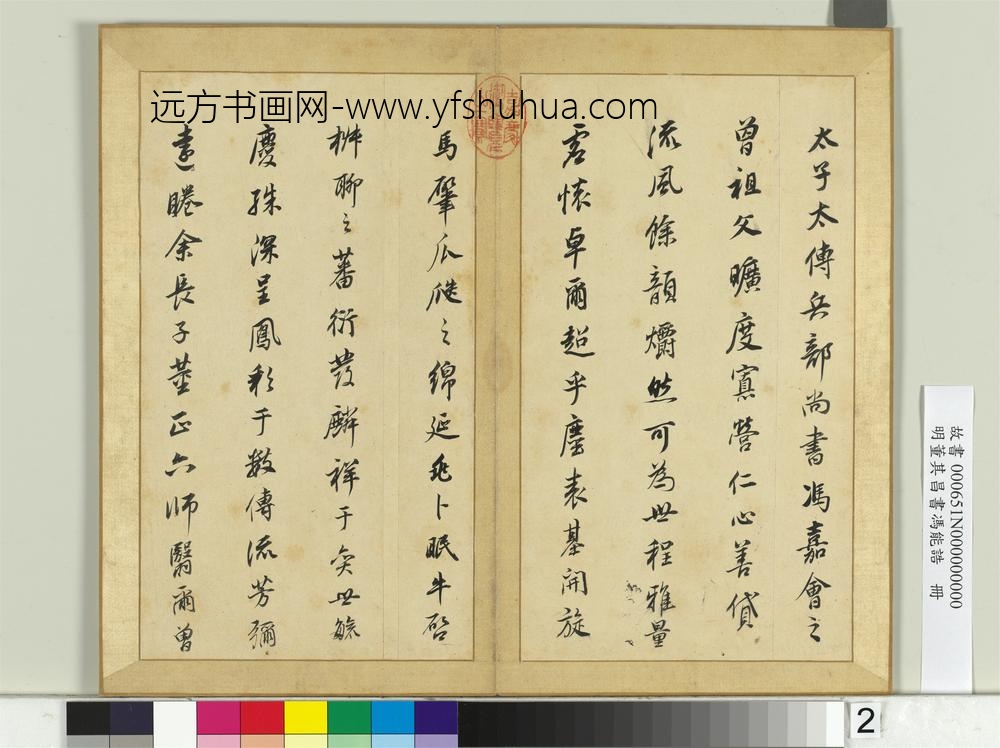 太子太傅兵部尚書馮嘉會之
曾祖父曠度寡營仁心善貸
流風餘韻爝然可為世程雅量
虛懷卓爾超乎塵表基開旋
馬肇瓜瓞之綿延兆卜眠牛啓
椒聊之蕃衍發麟祥于奕世毓
慶殊深呈鳳彩于數傳流芳彌
遠睠余長子董正六師繄爾曾
远方书画网-www.yfshuhua.com
故書 000651N000000000
明董其昌書馮能誥 冊
2